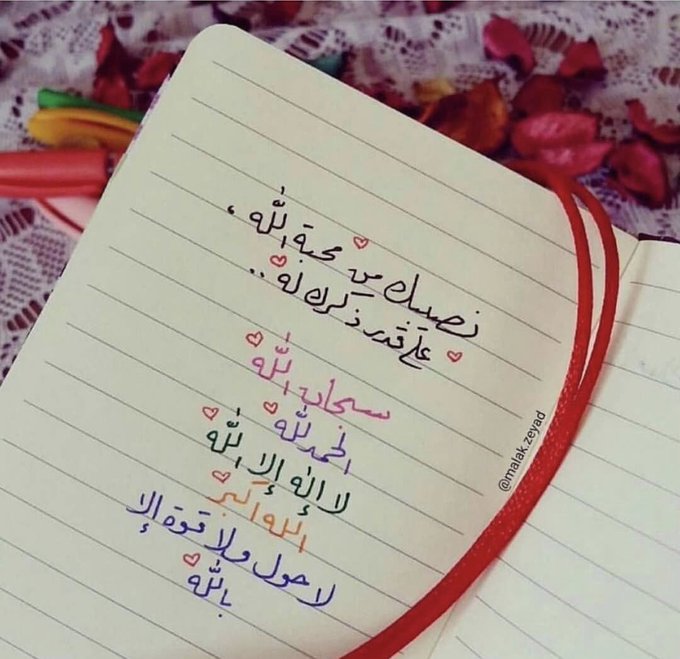 نصيبك من محبة الله ،
على قدر ذكرك له ..
سبحان الله
الحمدلله
لا إله إلا الله
الله أكبر
لا حول ولا قوة إلا
بالله
@malak.zeyad